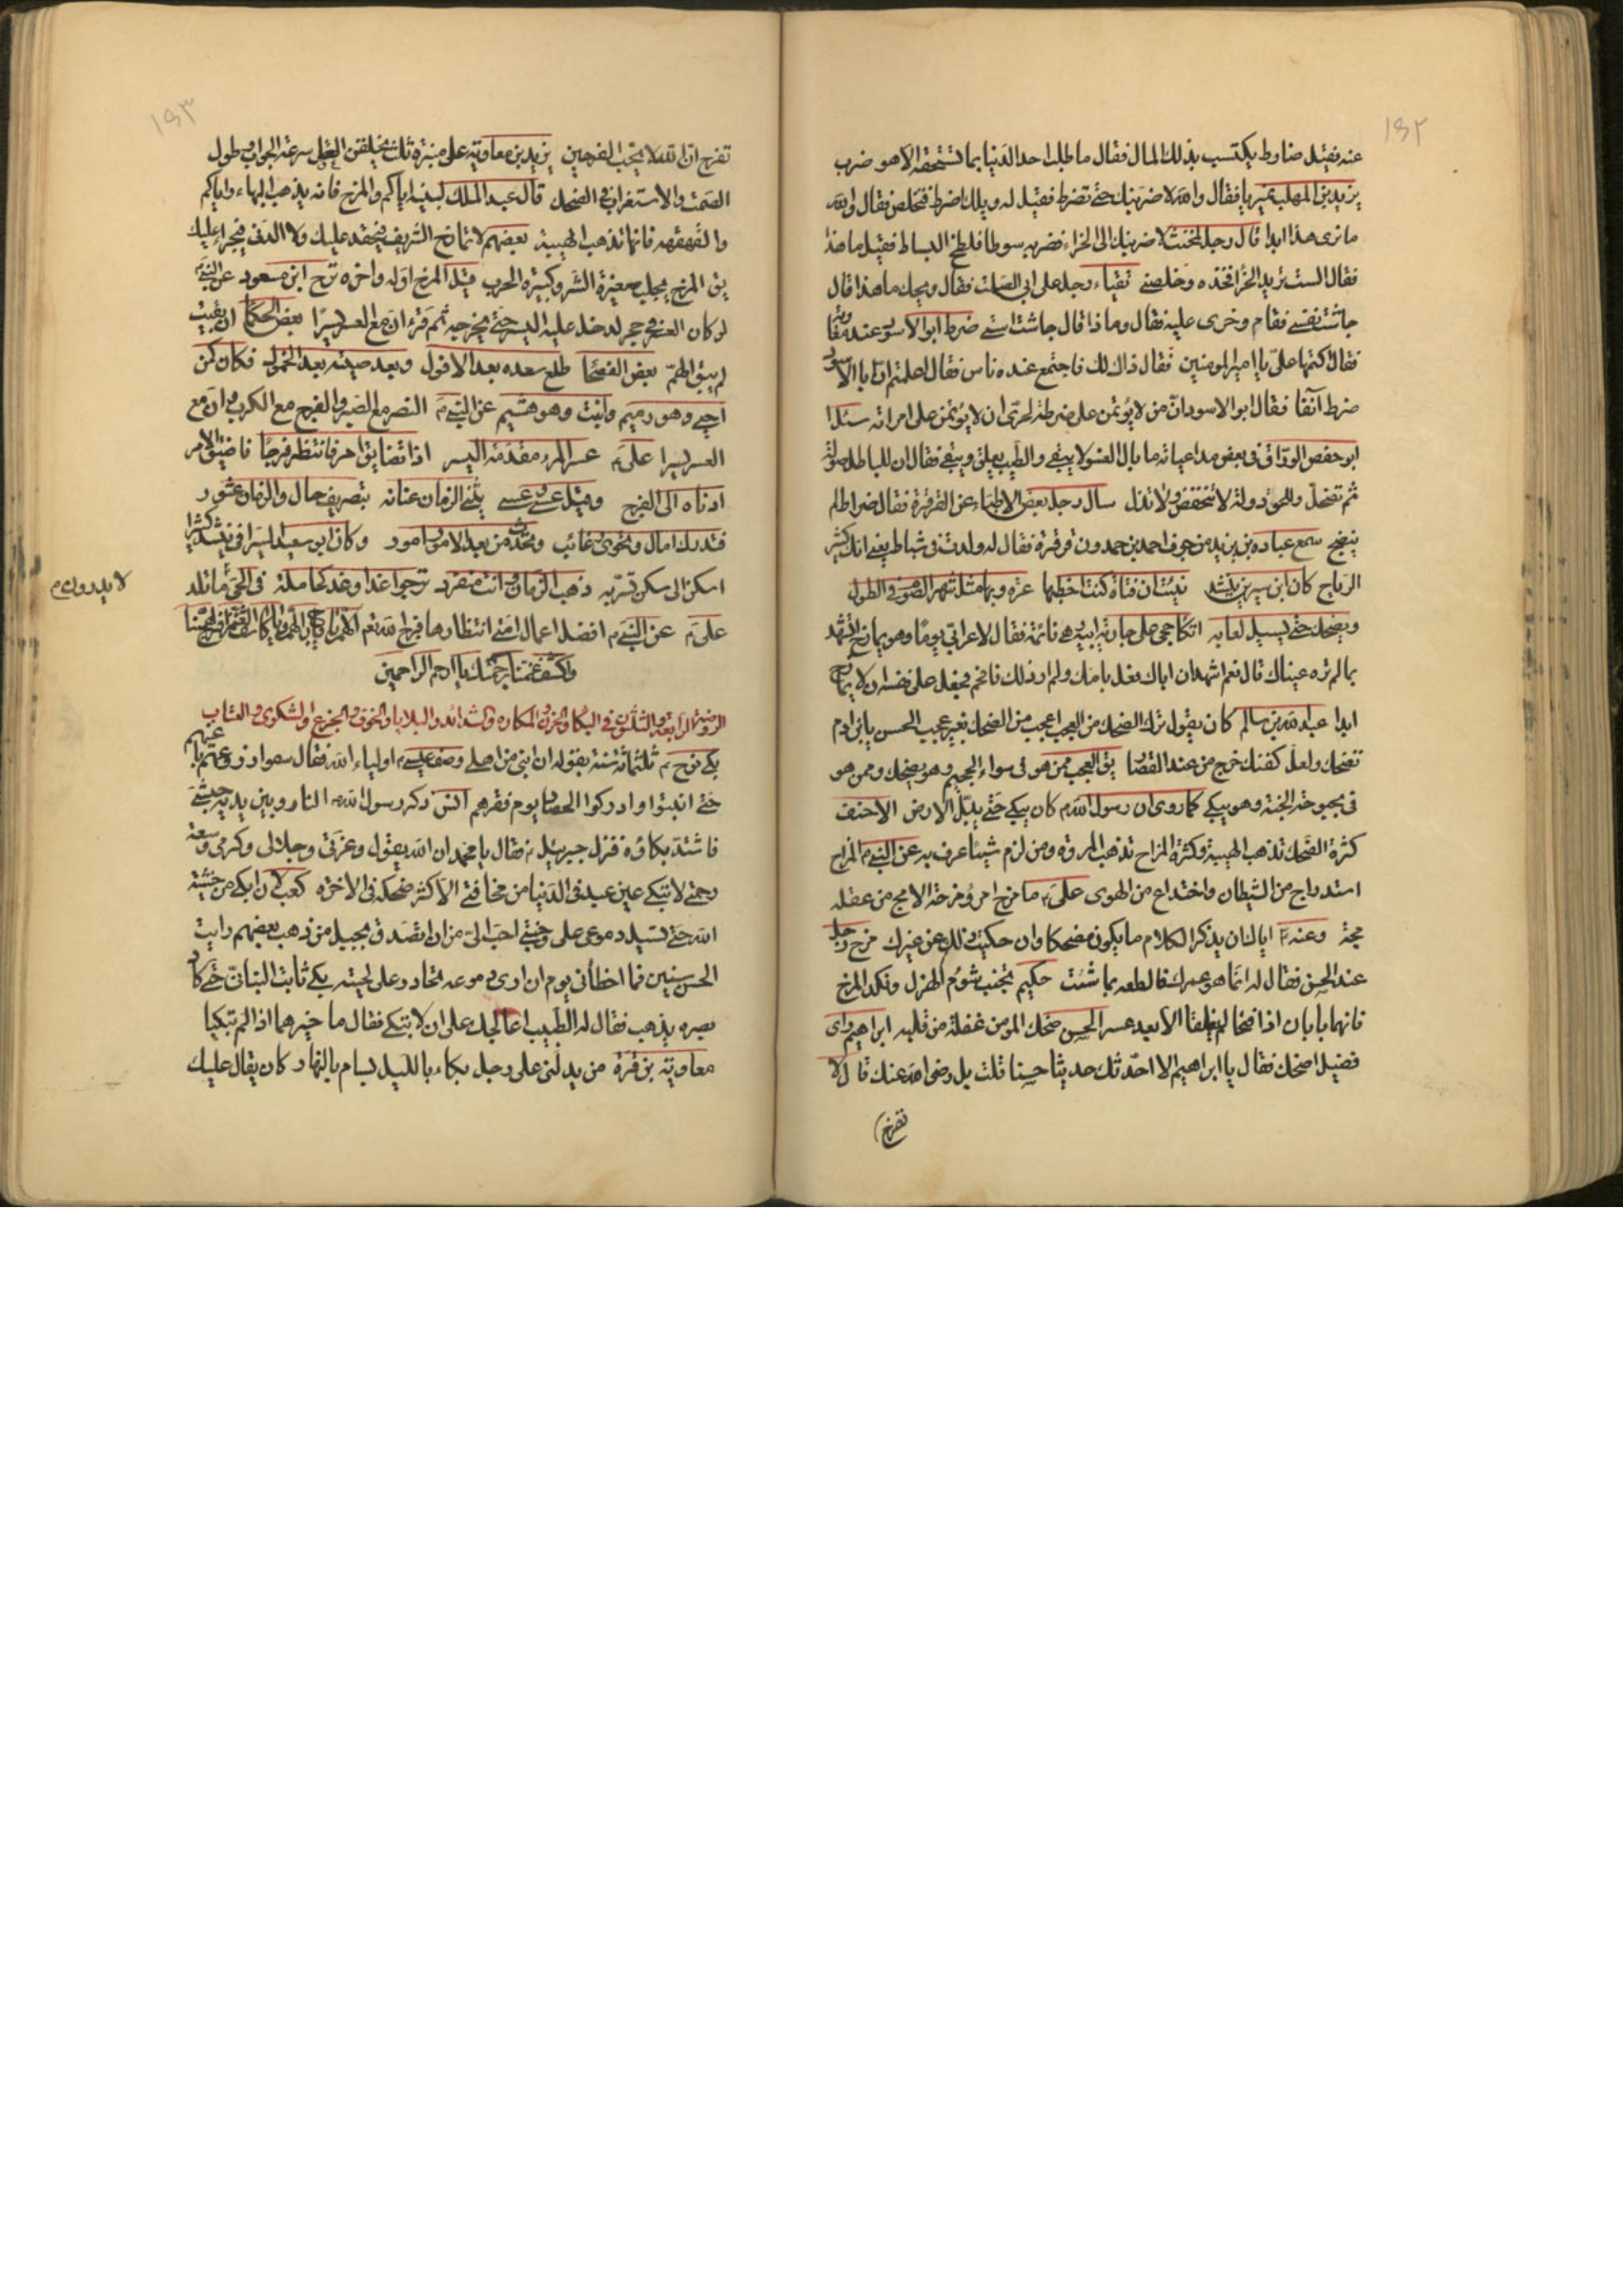 ١٩٢
عنه فقيل ضاوط يكتسب بذلك المال فقال ما طلب احد الدنيا بما تستحقه الا هو ضرب
يزيد بن المهلب فقال والله لاضربنك حتى تضرط فقيل له ويلك اضرط فتخلص فقال والله
ما ترى هذا ابدا قال رجل لمخنث لاضربنك الى الخراء فضربه سوطا فلطخ البساط فقيل ما هذا
فقال الست تريد الخرا فخذه وخلصني تقياء رجل على ابى الصلت فقال ويحك ما هذا قال
جاشت نفسى فقام وخرى عليه فقال وما ذا قال جاشت استى ضرط ابو الاسود عند معاوية
فقال اكتمها على يا امير المومنين فقال ذاك لك فاجتمع عنده ناس فقال اعلمتم ان ابا الاسود
ضرط آنفا فقال ابو الاسود ان من لا يؤتمن على ضرطة لحرى ان لا يؤتمن على امر امة سئل
ابو حفص الوراق فى بعض مداعباته ما بال الفسو لا يبقى والطيب يعلق ويبقى فقال ان للباطل صولة
ثم تضمحل وللحق دولة لا تنخفض ولا تذل سال رجل بعض الاطباء عن القرقرة فقال ضراط لم
ينضج سمع عباده بن يزيد من جوف احمد بن حمدون قرقرة فقال له ولدت فى شباط يعنى انك كثير
الرياح كان ابن سيرين ينشد نبئت ان فتاة كنت اخطبها عرقوبها مثل شهر الصوم فى الطول
ويضحك حتى يسيل لعابه اتكا جحى على جارية ابيه وهى نائمة فقال لاعرابى يوما وهو يمازح اتشهد
بما لم تره عيناك قال نعم اشهد ان اباك فعل بامك ولم ار ذلك فافحم فجعل على نفسه ان لا يمازح
ابدا عبد الله بن سالم كان يقول ترك الضحك من العجب اعجب من الضحك بغير عجب الحسن يا بن ادم
تضحك ولعل كفنك خرج من عند القصار يق العجب ممن هو فى سواء الجحيم وهو يضحك وممن هو
فى بحبوحة الجنة وهو يبكى كما روى ان رسول الله ص كان يبكى حتى يبتل الارض الاحنف
كثرة الضحك تذهب الهيبة وكثرة المزاح تذهب المروة ومن لزم شيئا عرف به عن النبى م المزاح
استدراج من الشيطان واختداع من الهوى على ع ما مزح امرؤ مزحة الا مج من عقله
مجة وعنه ع اياك ان يذكر الكلام ما يكون مضحكا وان حكيت ذلك عن غيرك مزح رجل
عند الحسن فقال له انما هو عمرك فاقطعه بما شئت حكيم تجنب شؤم الهزل ونكد المزح
فانهما بابان اذا فتحا لم يغلقا الا بعد عسر الحسن ضحك المومن غفلة من قلبه ابراهيم راى
فضيل اضحك فقال يا ابراهيم الا احدثك حديثا حسنا قلت بلى رضى الله عنك قال لا
تفرح
١٩٣
تفرح ان الله لا يحب الفرحين يزيد بن معاوية على منبره ثلث يخلقن العقل سرعة الجواب وطول
الصمت والاستغراق فى الضحك قال عبد الملك لبنيه اياكم والمزح فانه يذهب البهاء واياكم
والقهقهه فانها تذهب الهيبة بعضهم لا تمازح الشريف فيحقد عليك ولا الدنى فيجرا عليك
يق المزح يجلب صغيرة الشر وكبيرة الحرب قيل المزح اوله فرح واخره ترح ابن مسعود عن النبى م
لو كان العسر فى حجر لدخل عليه اليسر حتى يخرجه ثم قرء ان مع العسر يسرا بعض الحكما ان تيقنت
لم يبق الهم بعض الفصحا طلع سعده بعد الافول وبعد صيته بعد الخمول فكان كمن
احيى وهو رميم وانبت وهو هشيم عن النبى م النصر مع الصبر والفرج مع الكرب وان مع
العسر يسرا على ع عسر المرء مقدمة اليسر اذا تضايق امر فانتظر فرجا فاضيق الامر
ادناه الى الفرج وقيل عسى وعسى يثنى الزمان عنانه بتصريف حال والزمان عثور
فتدرك امال وتحوى غائب وتحدث من بعد الامور امور وكان ابو سعيد السيرافى ينشد كثيرا
اسكن الى سكن تسر به ذهب الزمان وانت منفرد ترجو غدا وغد كحاملة فى الحى ما تلد
لا يدرون م
على ع عن النبى م افضل اعمال امتى انتظارها فرج الله نعم اللهم يا فارج الهم ويا كاشف الغم فرج همنا
واكشف غمنا برحمتك يا ارحم الراحمين
الروضة الرابعة والثلثون فى البكا والحزن والمكاره والشدائد والبلايا والخوف والجزع والشكوى والعتاب
بكى نوح ع ثلثمائة سنة بقوله ان ابنى من اهلى وصف عيسى ع اولياء الله فقال سموا دزوعهم باعينهم
حتى انبتوا وادركوا الحصاد يوم فقرهم انس ذكر رسول الله م النار وبين يديه حبشى
فاشتد بكاؤه فنزل جبرئيل ع فقال يا محمد ان الله يقول وعزتى وجلالى وكرمى وسعة
رحمتى لا تبكى عين عبد فى الدنيا من مخافتى الا كثر ضحكه فى الاخره كعب لان ابكى من خشية
الله حتى تسيل دموعى على وجنتى احب الى من ان اتصدق بجبل من ذهب بعضهم رايت
الحسن سنين فما اخطأنى يوم ان ارى دموعه تحادر على لحيته بكى ثابت البنانى حتى كاد
بصره يذهب فقال له الطبيب اعالجك على ان لا تبكى فقال ما خيرهما اذا لم تبكيا
معاوية بن قرة من يدلنى على رجل بكاء بالليل بسام بالنهار كان يقال عليك